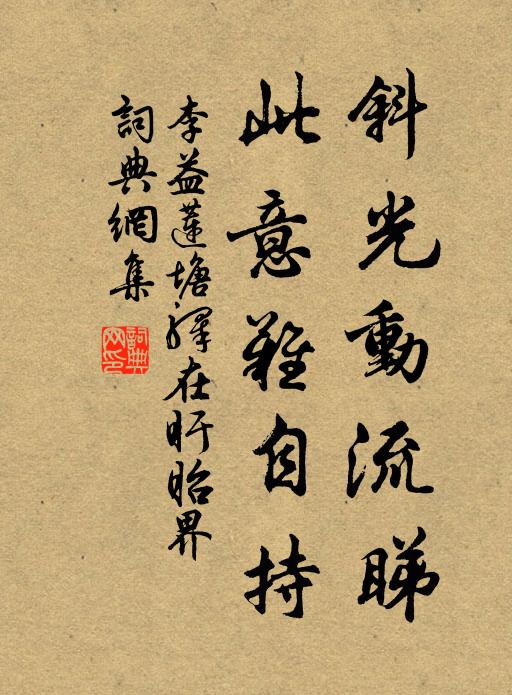 斜光動流睇
此意難自持
李益蓮塘驛在盱眙界
詞典網集
詞典網印